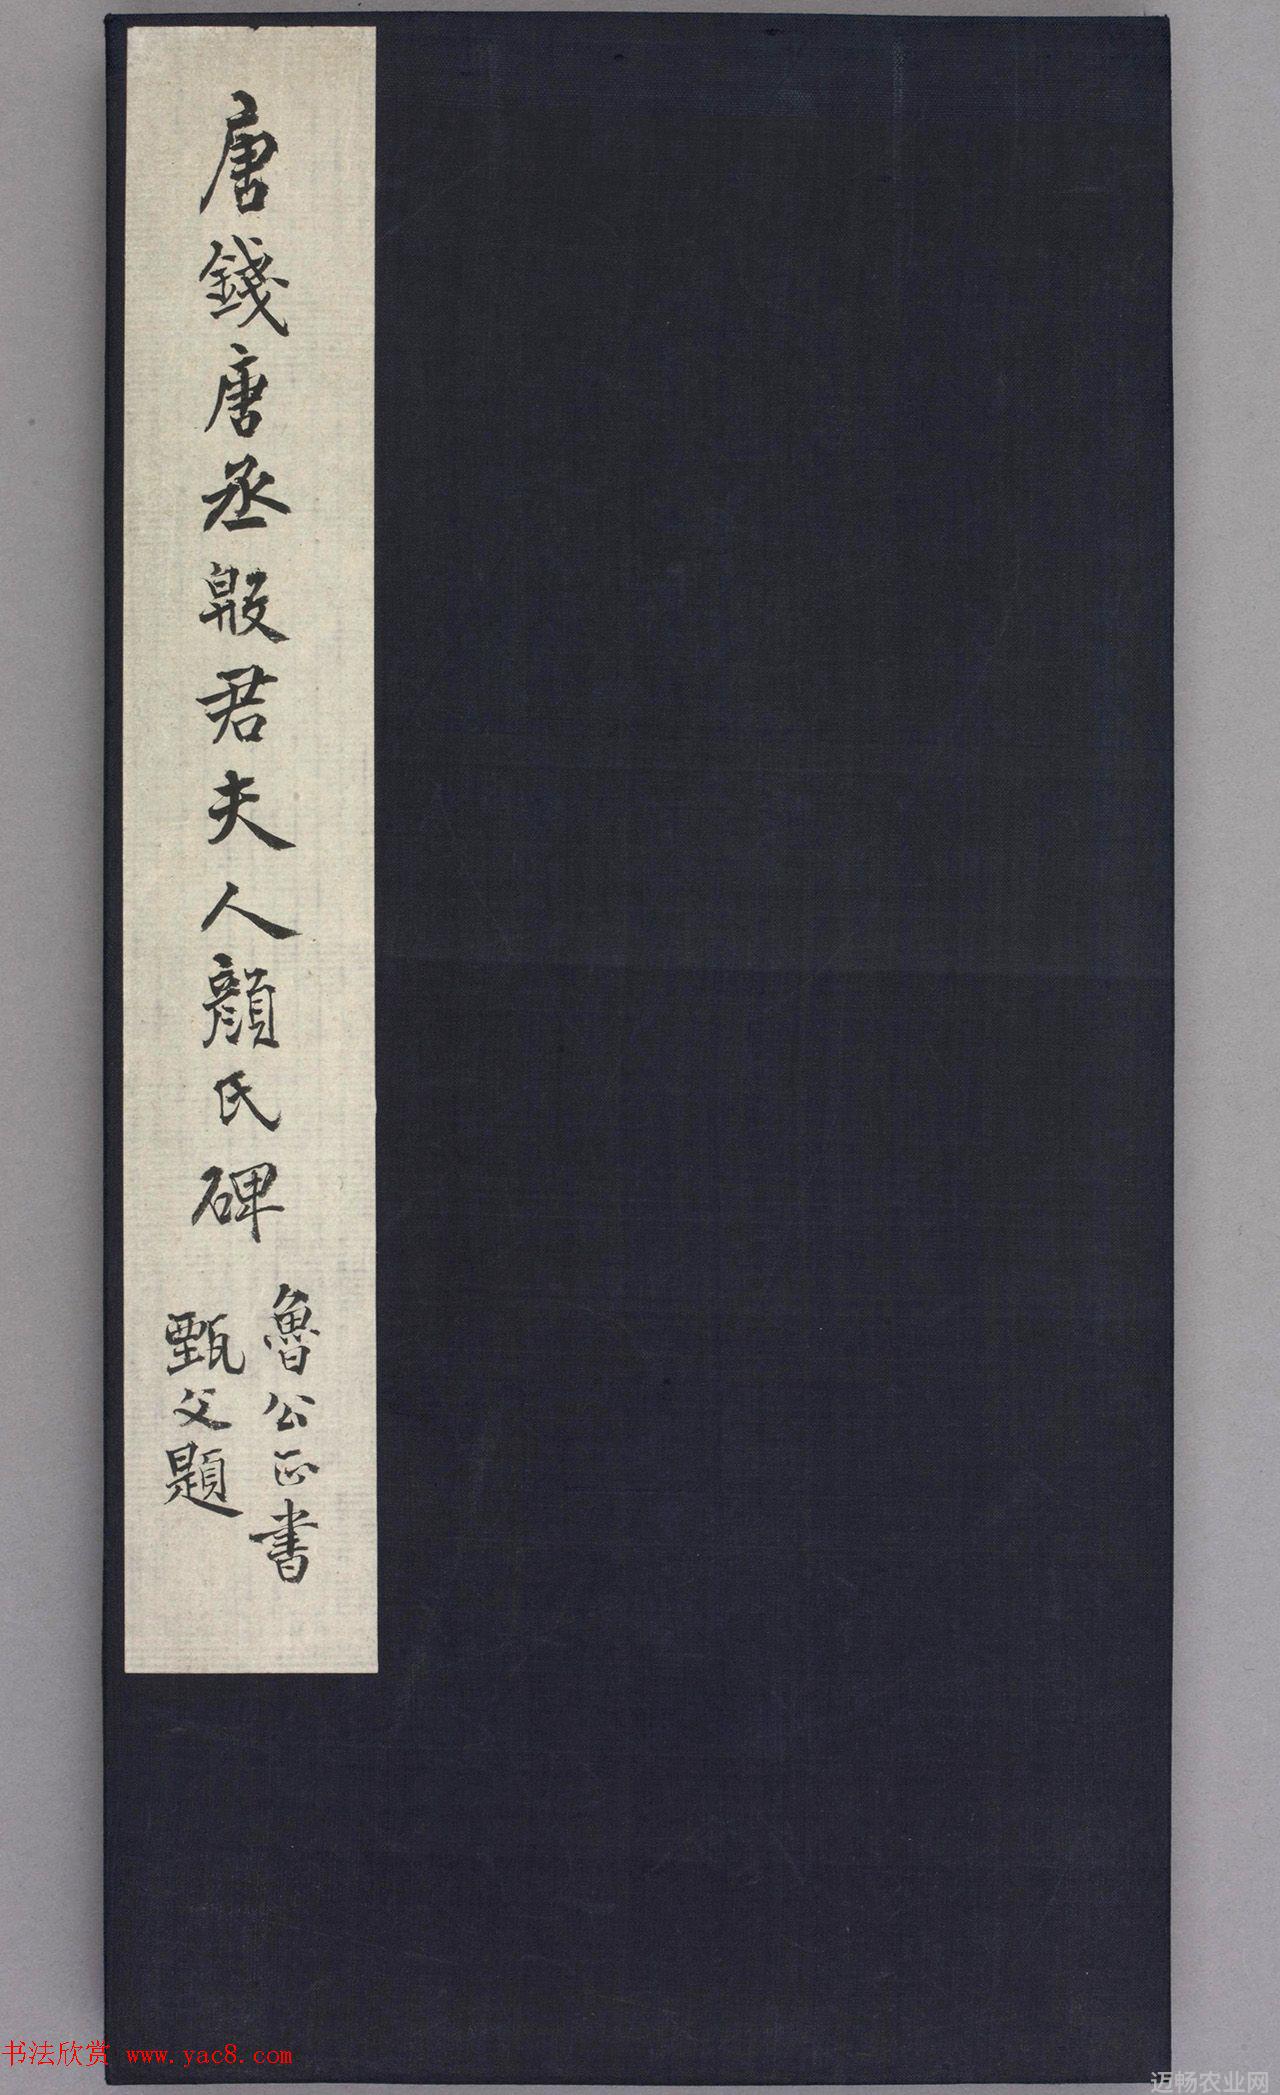 唐錢唐丞殷君夫人顏氏碑
魯公正書
甄父題
书法欣赏 www.yac8.com
迈畅农业网